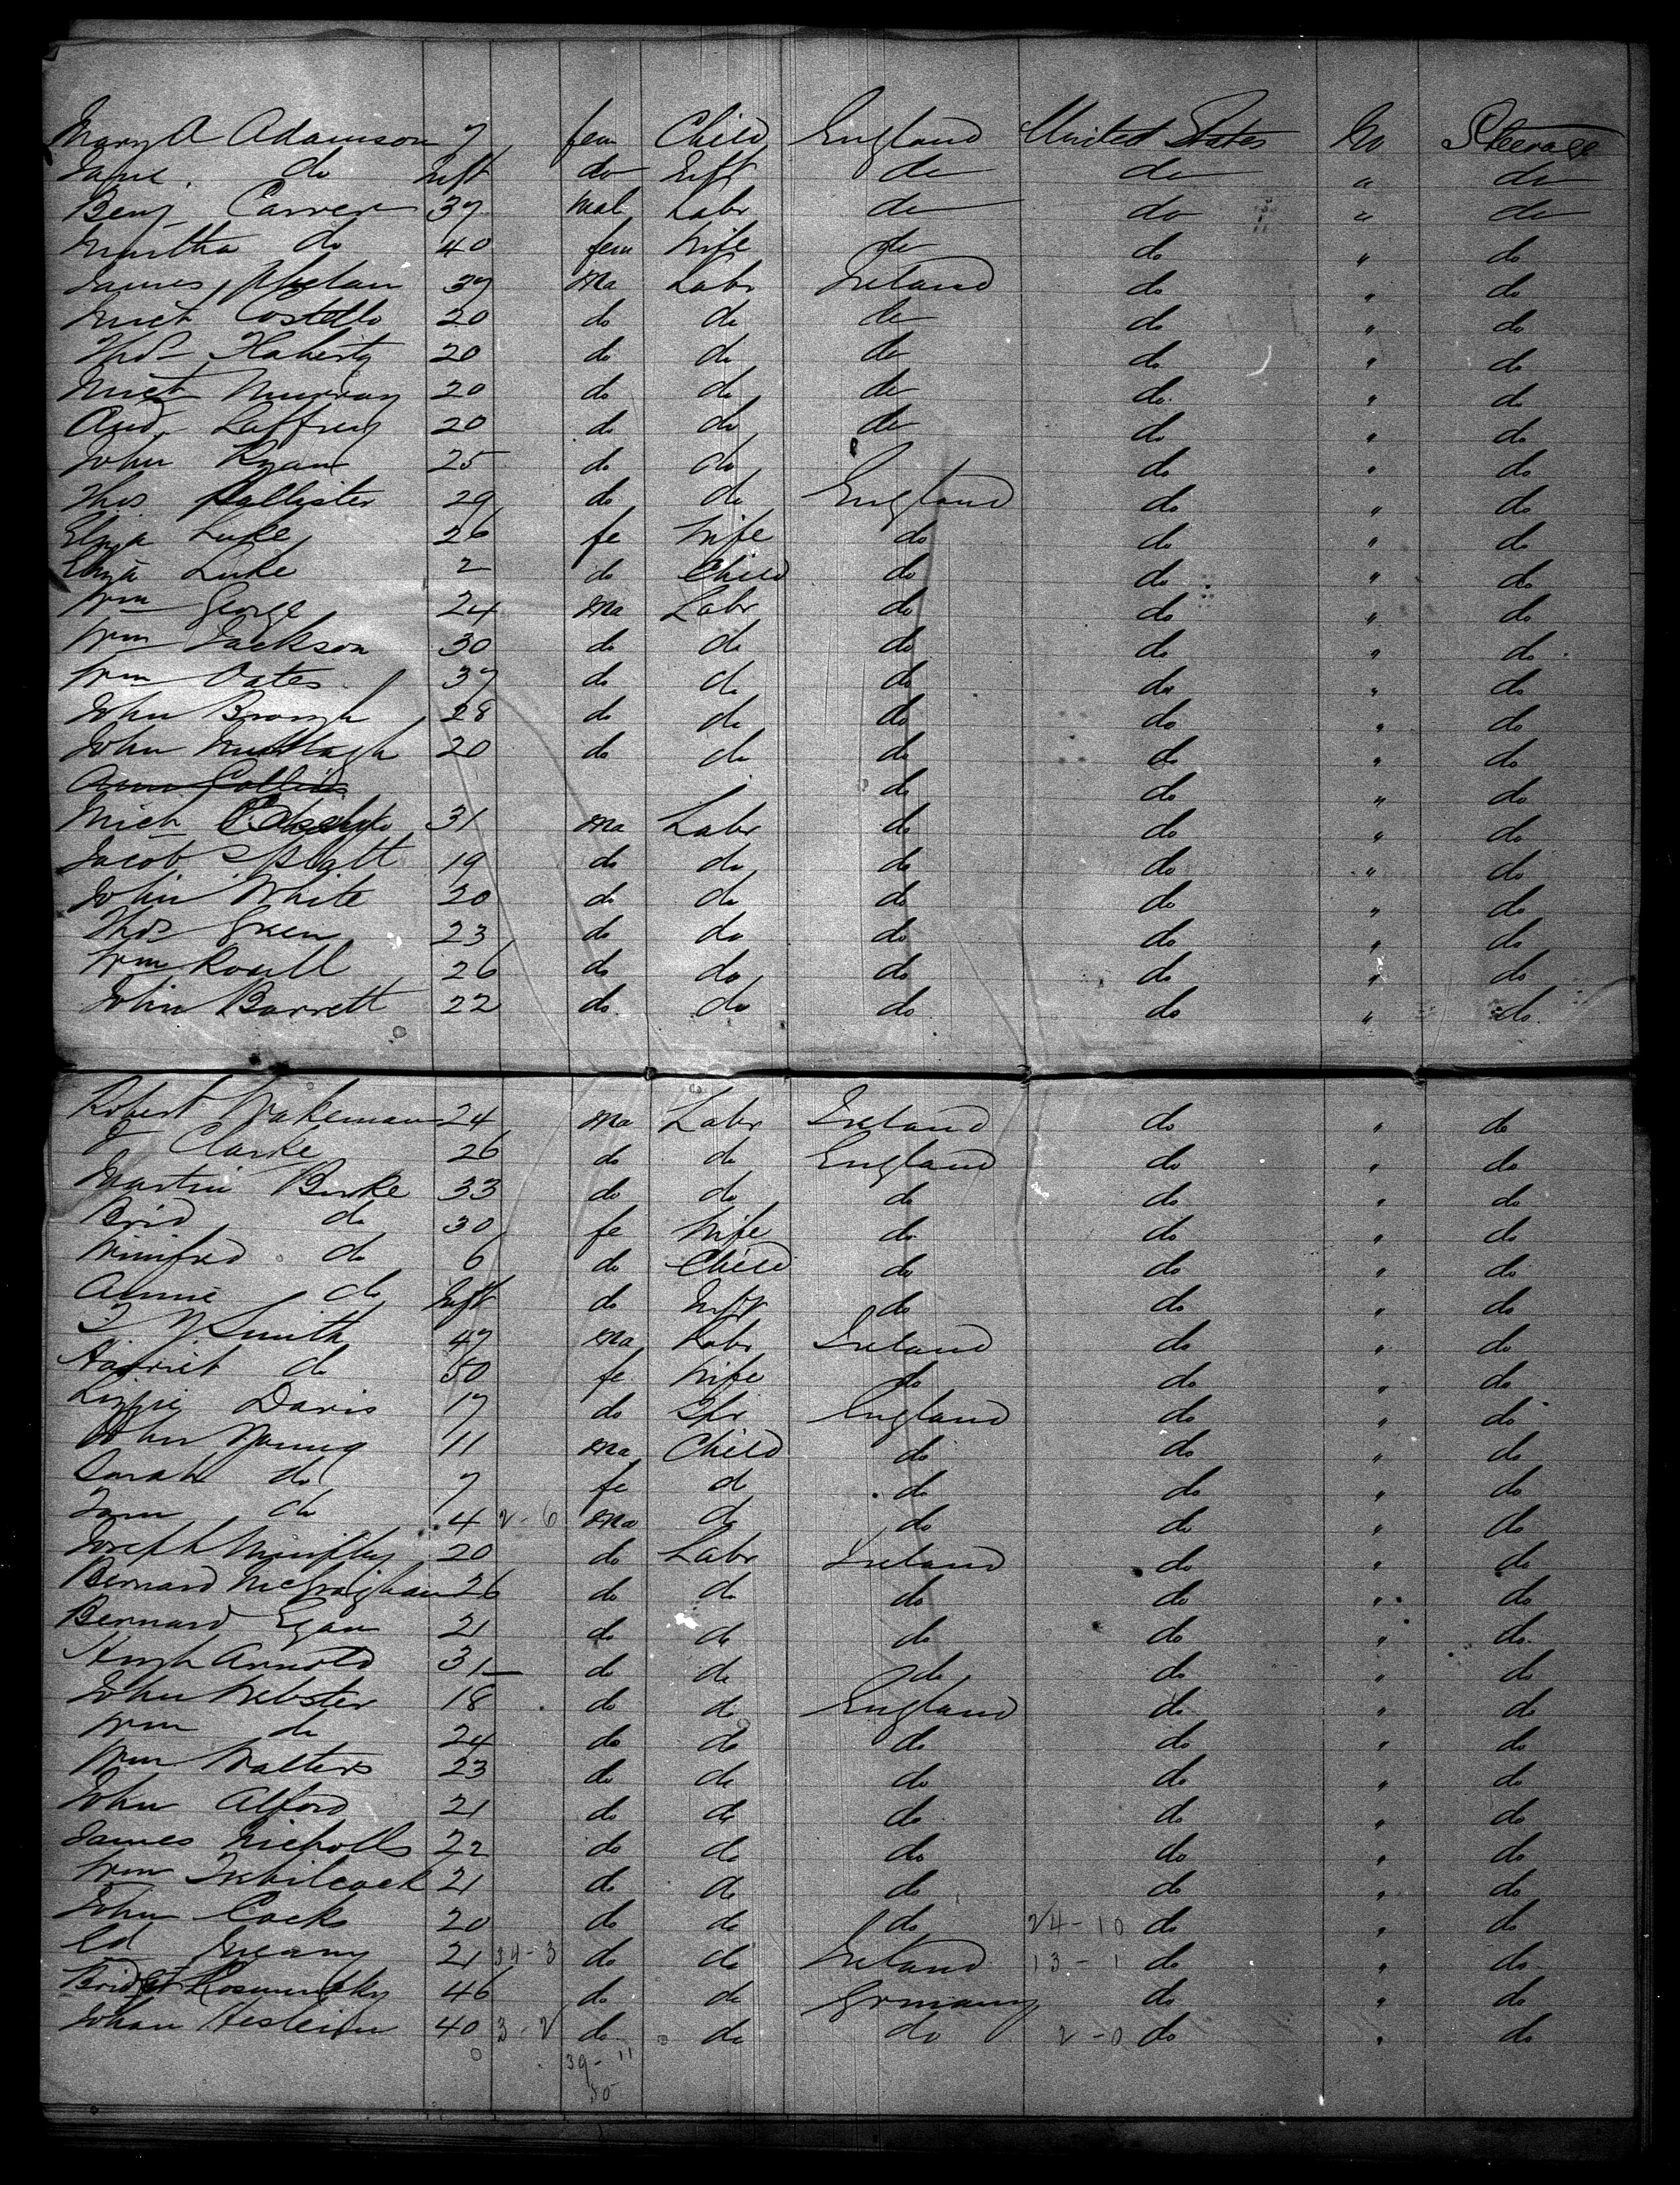 Mary A Adamson 7 fem Child England United States No Steerage
Jane do Inft do Inft do do " do
Benj Carver 37 mal Labr do do " do
Martha do 40 fem Wife do do " do
James Phelan 37 ma Labr Ireland do " do
Mich Costello 20 do do do do " do
Thos Flaherty 20 do do do do " do
Mich Murray 20 do do do do " do
And Laffrey 20 do do do do " do
John Ryan 25 do do do " do
Thos Pallister 29 do do England do " do
Eliza Luke 26 fe Wife do do " do
Eliza Luke 2 do Child do do " do
Wm George 24 ma Labr do do " do
Wm Jackson 30 do do do do " do
Wm Oates 37 do do do do " do
John Brough 28 do do do do " do
John Murtagh 20 do do do do " do
Ann Collins do do " do
Mich 31 ma Labr do do " do
Jacob Splatt 19 do do do do " do
John White 20 do do do do " do
Thos Green 23 do do do do " do
Wm Rowell 26 do do do do " do
John Barrett 22 do do do do " do
Robert Wakeman 24 ma Labr Ireland do " do
J Clarke 26 do do England do " do
Martin Burke 33 do do do do " do
Brid do 30 fe Wife do do " do
Winifred do 6 do Child do do " do
Annie do Inft do Inft do do " do
T. Y. Smith 47 ma Labr Ireland do " do
Harriet do 50 fe Wife do do " do
Lizzie Davis 17 do Spr England do " do
John Young 11 ma Child do do " do
Sarah do 7 fe do do do " do
Tom do 4 2-6 ma do do do " do
Joseph Murphy 20 do Labr Ireland do " do
Bernard McGraighan 26 do do do do " do
Bernard Egan 21 do do do do " do
Hugh Arnold 31 do do do do " do
John Webster 18 do do England do " do
Wm do 24 do do do do " do
Wm Walters 23 do do do do " do
John Alford 21 do do do do " do
James Nicholls 22 do do do do " do
Wm Trebilcock 21 do do do do " do
John Cock 20 do do do 24-10 do " do
Ed Meany 21 34-3 do do Ireland 13-1 do " do
Bridget 46 do do Germany do " do
Johan 40 3-2 do do do 2-0 do " do
39-11
50